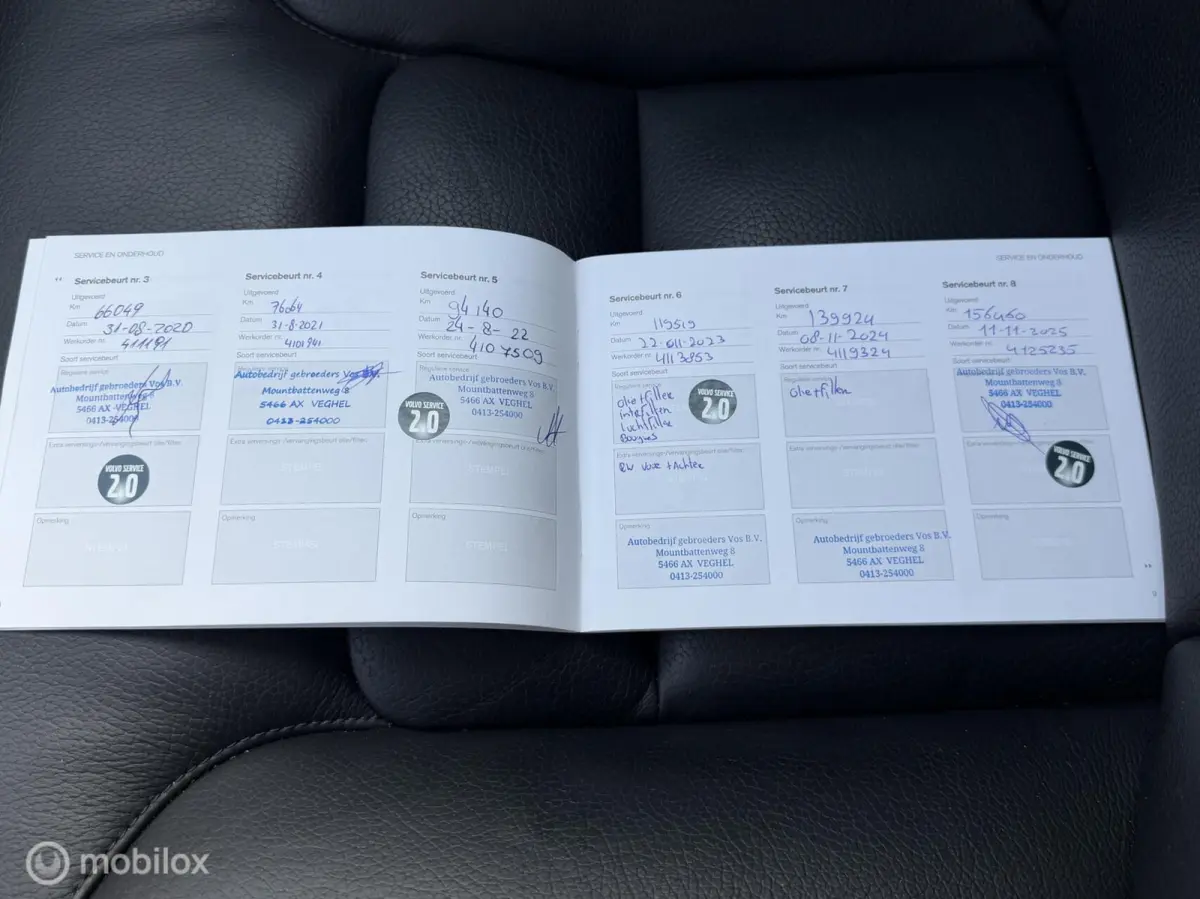 SERVICE EN ONDERHOUD
Servicebeurt nr. 3
Uitgevoerd
Km 66049
Datum 31-08-2020
Werkorder nr. 411191
Soort servicebeurt
Reguliere service
Autobedrijf gebroeders Vos B.V.
Mountbattenweg 8
5466 AX VEGHEL
0413-254000
VOLVO SERVICE
2.0
Opmerking
STEMPEL
Servicebeurt nr. 4
Uitgevoerd
Km 76064
Datum 31-8-2021
Werkorder nr. 4101941
Soort servicebeurt
Autobedrijf gebroeders Vos B.V.
Mountbattenweg 8
5466 AX VEGHEL
0413-254000
STEMPEL
Opmerking
STEMPEL
Servicebeurt nr. 5
Uitgevoerd
Km 94140
Datum 24-8-22
Werkorder nr. 4107509
Soort servicebeurt
Reguliere service
Autobedrijf gebroeders Vos B.V.
Mountbattenweg 8
5466 AX VEGHEL
0413-254000
VOLVO SERVICE
2.0
STEMPEL
Opmerking
STEMPEL
SERVICE EN ONDERHOUD
Servicebeurt nr. 6
Uitgevoerd
Km 119519
Datum 22-011-2023
Werkorder nr. 4113853
Soort servicebeurt
Reguliere service
Oliefilter
intefilter
Luchtfilter
Bougies
VOLVO SERVICE
2.0
RW voor + Achter
Opmerking
Autobedrijf gebroeders Vos B.V.
Mountbattenweg 8
5466 AX VEGHEL
0413-254000
Servicebeurt nr. 7
Uitgevoerd
Km 139924
Datum 08-11-2024
Werkorder nr. 4119324
Soort servicebeurt
Reguliere service
Oliefilter
Opmerking
Autobedrijf gebroeders Vos B.V.
Mountbattenweg 8
5466 AX VEGHEL
0413-254000
Servicebeurt nr. 8
Uitgevoerd
Km 156460
Datum 11-11-2025
Werkorder nr. 4125235
Soort servicebeurt
Autobedrijf gebroeders Vos B.V.
Mountbattenweg 8
5466 AX VEGHEL
0413-254000
VOLVO SERVICE
2.0
Opmerking
9
mobilox